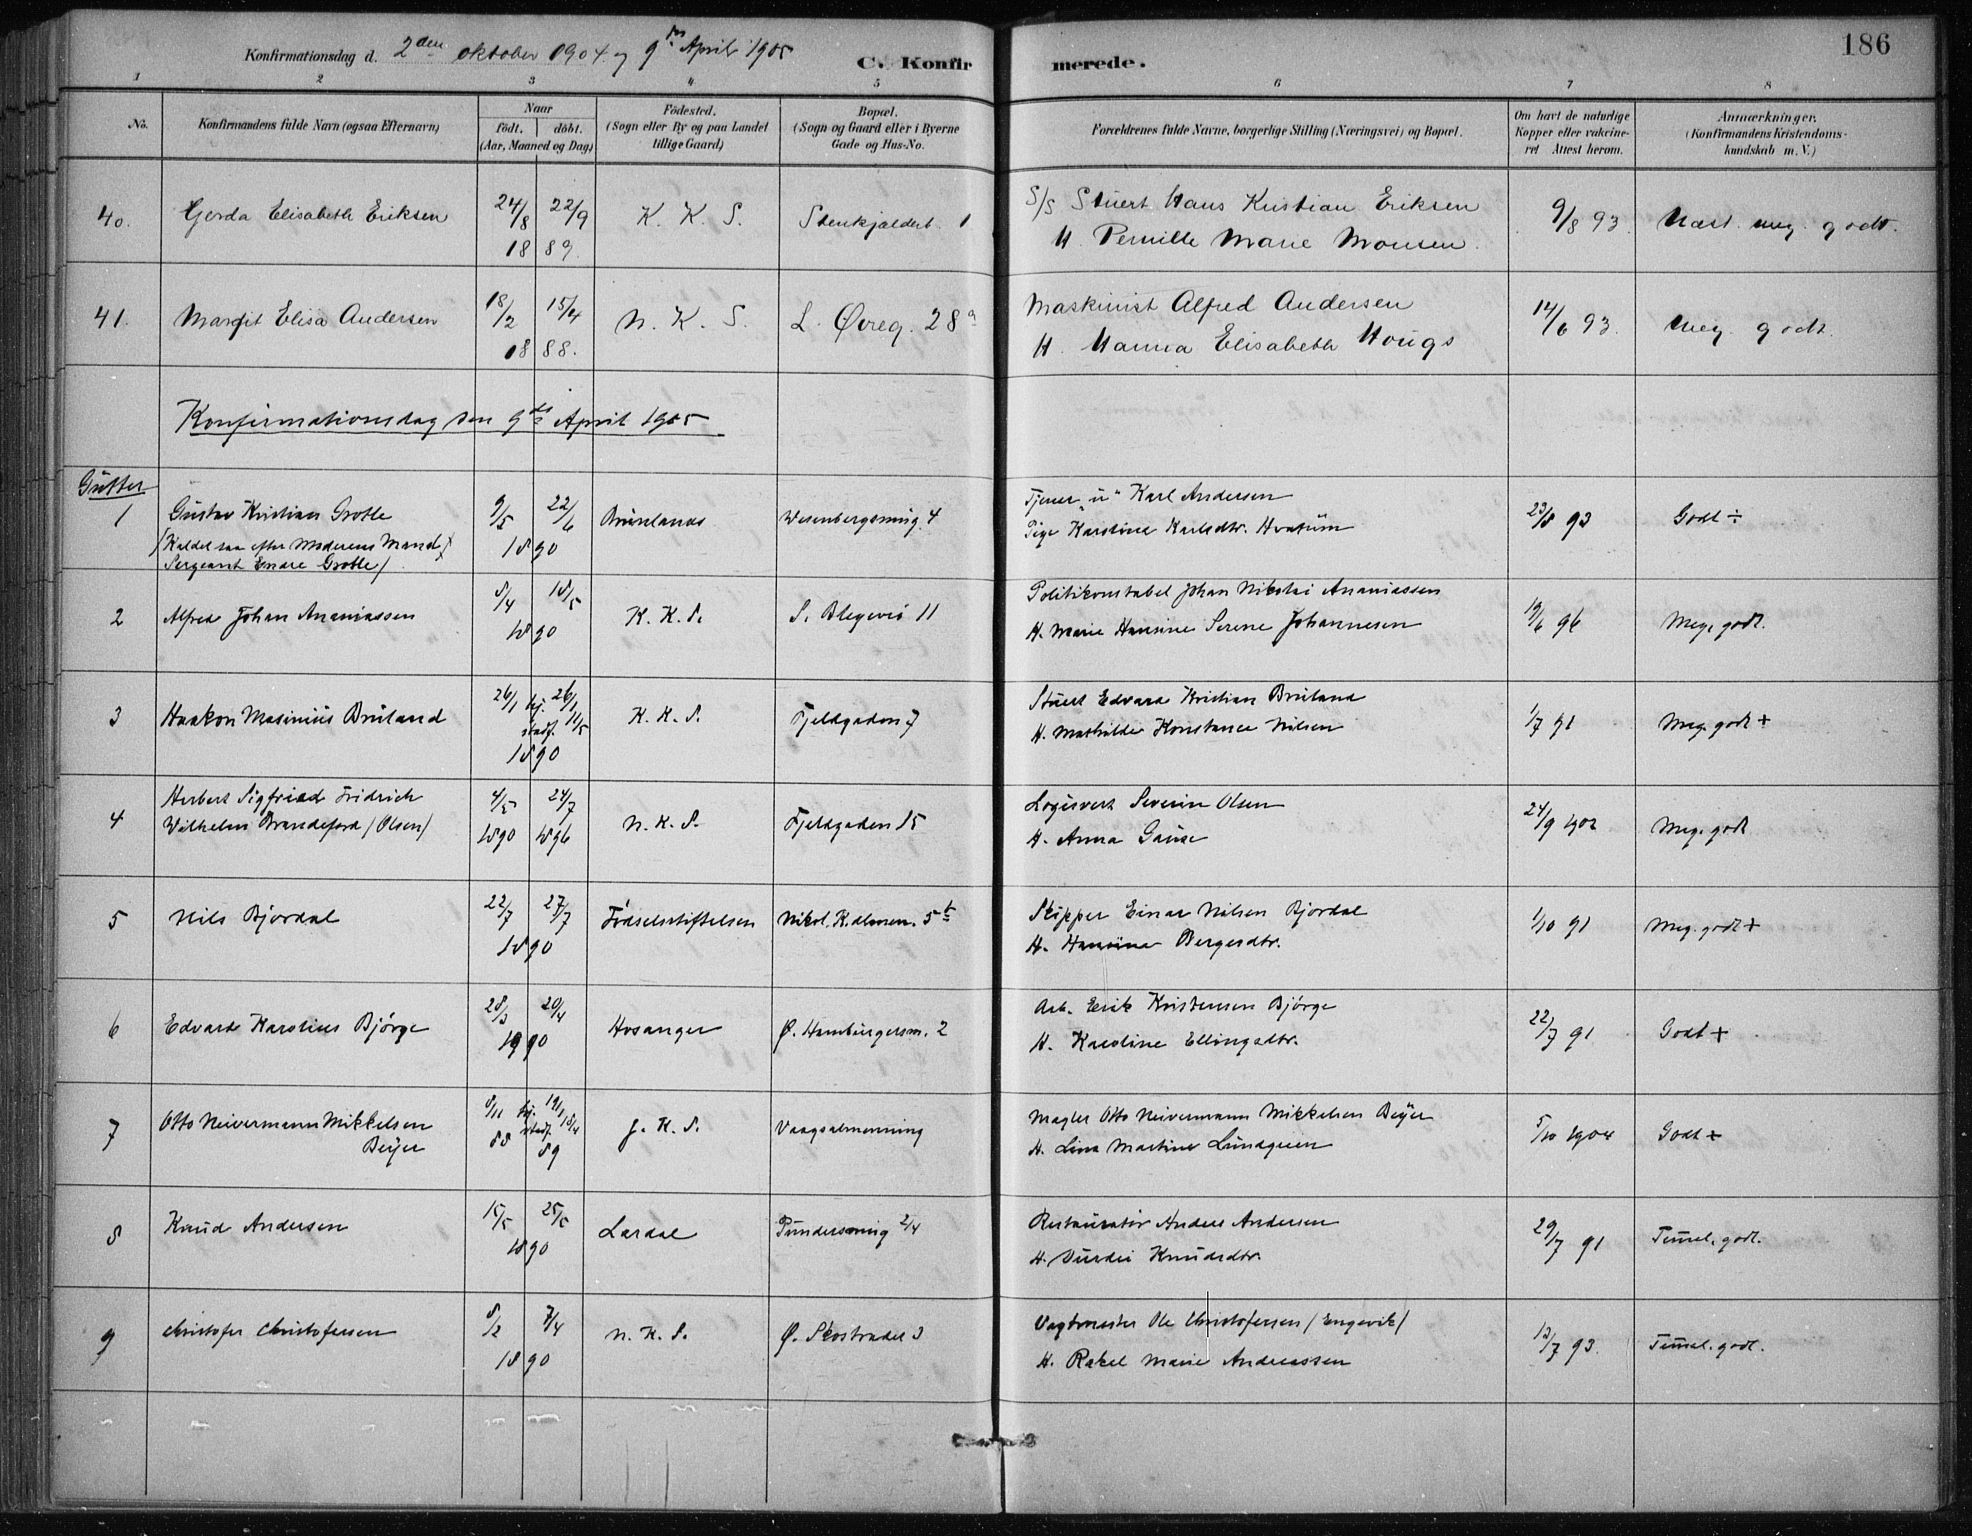 Konfirmationsdag d. 2den oktober 1904 og 9de April 1905
C. Konfirmerede.
186
1 2 3 4 5 6 7 8
No.
Konfirmandens fulde Navn (ogsaa Efternavn)
Naar
født. døbt.
(Aar, Maaned og Dag)
Fødested.
(Sogn eller By og paa Landet
tillige Gaard)
Bopæl.
(Sogn og Gaard eller i Byerne
Gade og Hus-No.
Forældrenes fulde Navne, borgerlige Stilling (Næringsvei) og Bopæl.
Om havt de naturlige
Kopper eller vakcine-
ret Attest herom.
Anmærkninger.
(Konfirmandens Kristendoms-
kundskab m. V.)
40. Gerda Elisabeth Eriksen 24/8 22/9 1889. K. K. S. Stenkjælderb. 1
S/S Stuert Hans Kristian Eriksen
H Pernille Marie Monsen.
9/8 93. Næst. meg. godt.
41. Margit Elisa Andersen 18/2 15/4 1888. N. K. S. L. Øvreg. 28a
Maskinist Alfred Andersen
H. Hanna Elisabeth Hougs
14/6 93. Meg. godt.
Konfirmationsdag den 9de April 1905
Gutter
1 Gustav Kristian Grotle
(Kaldet saa efter Moderens Mand
Sergeant Endre Grotle)
9/5 22/6 1890 Brunlanes Wesenbergsmug. 4
Tjener "u" Karl Andersen
Pige Karoline Karlsdtr. Hvatum
23/8 93 Godt ÷
2 Alfred Johan Ananiassen 8/4 18/5 1890 K. K. S. S. Blegevei 11
Politikonstabel Johan Nikolai Ananiassen
H. Marie Hansine Serene Johannesen
19/6 96 Meg. godt.
3 Haakon Masinius Bruland 26/1 hj. 26/1 stadf. 11/5 1890 K. K. S. Fjeldgaden 7
Stuert Edvard Kristian Bruland
H. Mathilde Konstance Nilsen
1/7 91 Meg. godt +
4 Herbert Sigfried Fridrich
Wilhelm Brandeford (Olsen)
4/5 1890 24/7 1896 N. K. S. Fjeldgaden 15
Logisvert Severin Olsen
H. Anna Gause
24/9 1902 Meg. godt
5 Nils Bjordal 22/7 27/7 1890 Fødselsstiftelsen Nikol. K. almen. 5b
Skipper Einar Nilsen Bjordal
H. Hansine Bergesdtr.
1/10 91 Meg. godt +
6 Edvard Karolius Bjørge 28/3 20/4 1890 Hosanger Ø. Hamburgersm. 2
Arb. Erik Kristensen Bjørge
H. Karoline Ellingsdtr.
22/7 91 Godt +
7 Otto Neivermann Mikkelsen
Beyer
8/11 88 hj. 19/1 stadf. 18/4 89 J. K. S. Vaagsalmenning
Mægler Otto Neivermann Mikkelsen Beyer
H. Lina Martine Lundgreen
5/10 1904 Godt +
8 Knud Andersen 15/5 25/5 1890 Lærdal Pundersmug 2/4
Restauratør Anders Andersen
H. Durdei Knudsdtr.
29/7 91 Temmel. godt.
9 Christofer Christofersen 8/2 7/4 1890 N. K. S. Ø. Skostrædet 3
Vagtmester Ole Christofersen (Engevik)
H. Rakel Marie Andreassen
12/7 93. Temmel. godt.